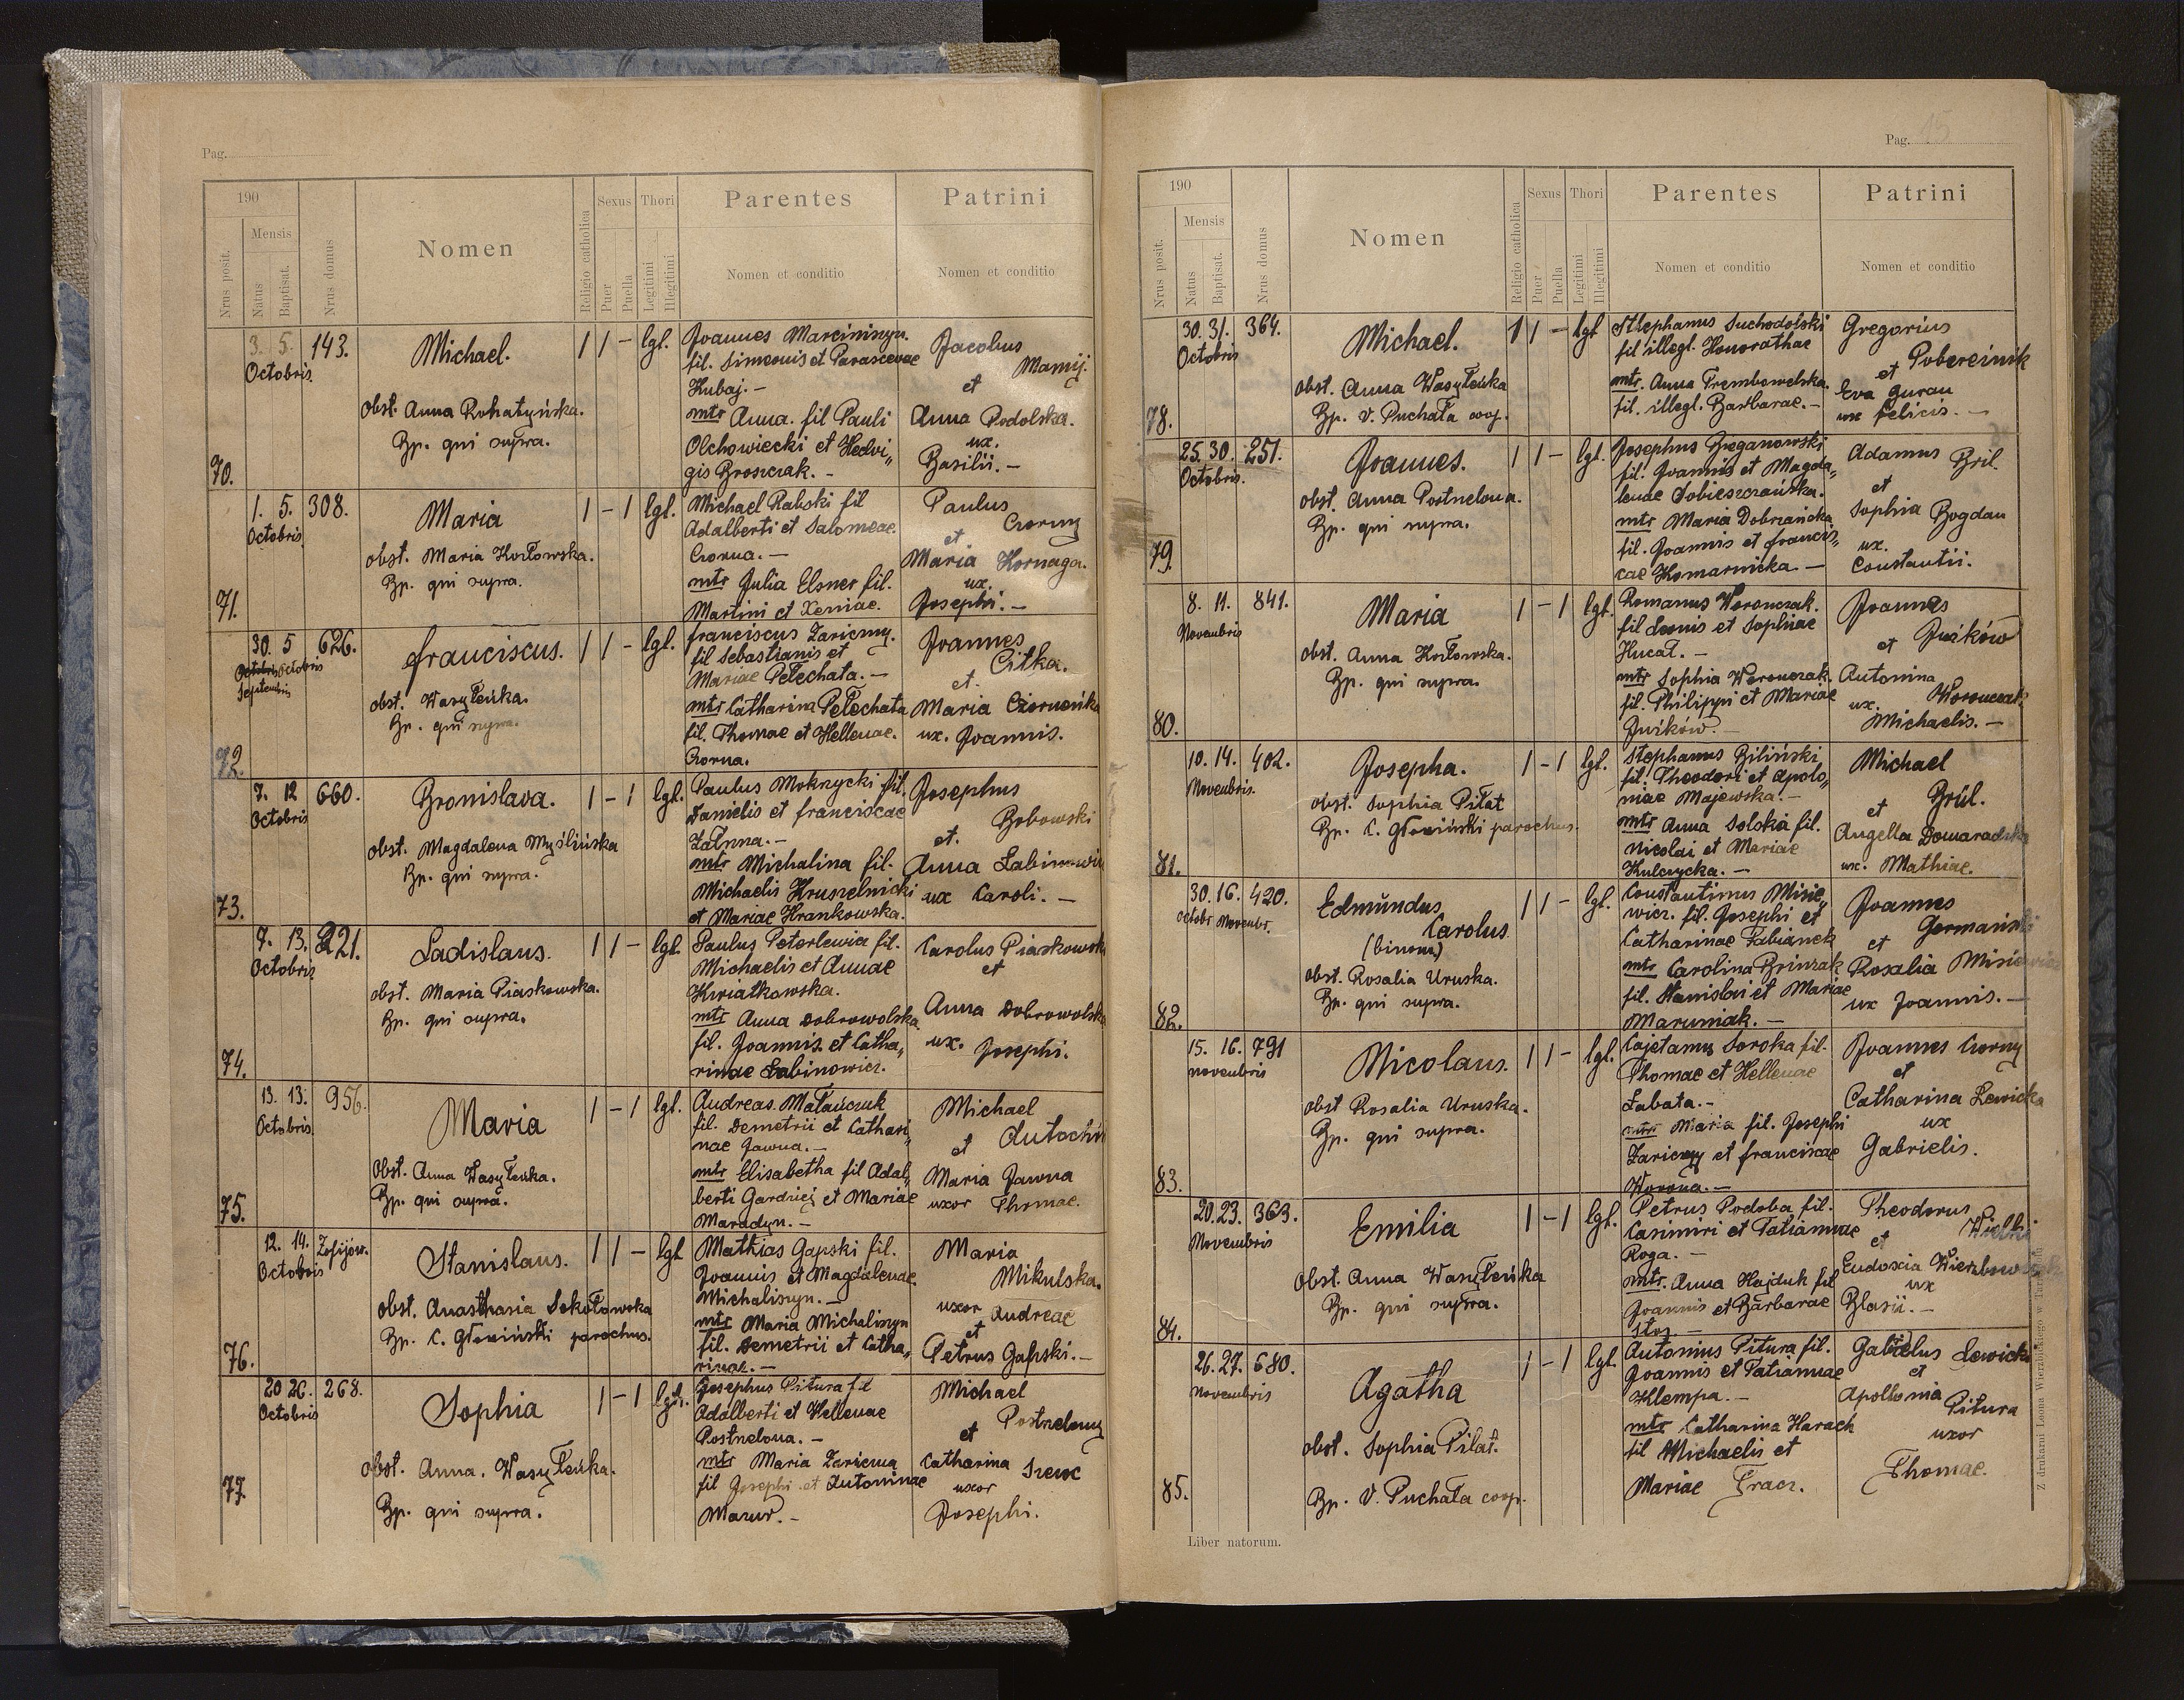 Pag.
190
Nrus posit.
Mensis
Natus
Baptisat.
Nrus domus
Nomen
Religio catholica
Sexus
Puer
Puella
Thori
Legitimi
Illegitimi
Parentes
Nomen et conditio
Patrini
Nomen et conditio
70.
3. 5.
Octobris
143.
Michael.
obst. Anna Rohatyńska.
Bp. qui supra.
1 1 - lgl.
Joannes Marciniszyn
fil. Simeonis et Parascevae
Kubaj. -
mtr Anna. fil Pauli
Olchowiecki et Hedvi„
gis Broszczak. -
Jacobus
Mamij.
et
Anna Podolska.
ux.
Basilii. -
71.
1. 5.
Octobris
308.
Maria
obst. Maria Kozłowska.
Bp. qui supra.
1 - 1 lgl.
Michael Rabski fil
Adalberti et Salomeae
Czorna. -
mtr Julia Elsner fil.
Martini et Xeniae.
Paulus
Czorny
et
Maria Kornaga.
ux.
Josephi. -
72.
30. 5
Octobris Octobris
Septembris
626.
Franciscus.
obst. Wasyłeńka.
Bp. qui supra.
1 1 - lgl.
Franciscus Zariczny.
fil Sebastianis et
Mariae Pełechata. -
mtr Catharina Pełechata
fil. Thomae et Hellenae.
Czorna.
Joannes
Citka.
et.
Maria Czorneńka
ux. Joannis.
73.
7. 12
Octobris
660.
Bronislava.
obst. Magdalena Myślińska
Bp. qui supra.
1 - 1 lgl.
Paulus Mokrzycki fil.
Danielis et Franciscae
Załnna. -
mtr Michalina fil.
Michaelis Hruszelnicki
et Mariae Hrankowska.
Josephus
Bobowski
et.
Anna
ux Caroli. -
74.
7. 13.
Octobris
221.
Ladislaus.
obst. Maria Piaskowska.
Bp. qui supra.
1 1 - lgl.
Paulus Peterlewicz fil.
Michaelis et Annae
Kwiatkowska.
mtr Anna Dobrowolska
fil. Joannis et Catha„
rinae Łabinowicz.
Carolus Piaskowski
et
Anna Dobrowolska
ux. Josephi.
75.
13. 13.
Octobris
956.
Maria
Obst. Anna Wasyłeńka.
Bp. qui supra.
1 - 1 lgl.
Andreas. Matańczuk
fil. Demetrii et Cathari„
nae Jawna. -
mtr Elisabetha fil Adal„
berti Gardziej et Mariae
Maradyn. -
Michael
et
Maria Jawna
uxor Thomae.
76.
12. 14.
Octobris
Zofijów.
Stanislaus.
obst. Anasthasia Sokołowska
Bp. C. Głowiński parochus.
1 1 - lgl
Mathias Gapski fil.
Joannis et Magdalenae
Michaliszyn. -
mtr Maria Michaliszyn
fil. Demetrii et Catha„
rinae. -
Maria
Mikulska.
uxor Andreae
et
Petrus Gapski. -
77.
20 26.
Octobris
268.
Sophia
obst. Anna. Wasyłeńka.
Bp. qui supra.
1 - 1 lgl.
Josephus Pitura fil
Adalberti et Hellenae
Postnelona. -
mtr Maria Zariczna
fil Josephi et Antoninae
Mazur. -
Michael
Postnelony
et
Catharina Szewc
uxor
Josephi.
Pag. 15
190
Nrus posit.
Mensis
Natus
Baptisat.
Nrus domus
Nomen
Religio catholica
Sexus
Puer
Puella
Thori
Legitimi
Illegitimi
Parentes
Nomen et conditio
Patrini
Nomen et conditio
78.
30. 31.
Octobris
364.
Michael.
obst. Anna Wasyłeńka
Bp. V. Puchała coop.
1 1 - lgl
Sthephanus Suchodolski
fil illegl. Honorathae
mtr. Anna Trembowelska.
fil. illegl. Barbarae. -
Gregorius
et Pobereinik
Eva Guran
ux Felicis. -
79.
25. 30.
Octobris.
251.
Joannes.
obst. Anna Postnelona.
Bp. qui supra.
1 1 - lgl.
Josephus Breganowski
fil. Joannis et Magda„
lenae Sobieszczańska.
mtr Maria Dobrzańska
fil. Joannis et Francis„
cae Komarnicka. -
Adamus Bril.
et
Sophia Bogdan
ux.
Constantii.
80.
8. 11.
Novembris
841.
Maria
obst. Anna Kozłowska.
Bp. qui supra.
1 - 1 lgl.
Romanus Woronczak.
fil Leonis et Sophiae
Hucał. -
mtr Sophia Woronczak.
fil. Philippi et Mariae
Juśków. -
Joannes
et Juśków
Antonina
ux. Woronczak
Michaelis. -
81.
10. 14.
Novembris.
402.
Josepha.
obst. Sophia Piłat
Bp. C. Głowiński parochus.
1 - 1 lgl.
Stephanus Biliński
fil. Theodori et Apolo„
niae Majewska. -
mtr Anna Solska fil.
Nicolai et Mariae
Kulczycka. -
Michael
et Brül.
Angella Domaradzka
ux. Mathiae.
82.
30. 16.
Octobr. Novembr.
420.
Edmundus
Carolus
(binom)
obst. Rosalia Uruska.
Bp. qui supra.
1 1 - lgl.
Constantinus Misie„
wicz. fil. Josephi et
Catharinae Fabianek
mtr Carolina Brinzak
fil. Stanislai et Mariae
Maruniak. -
Joannes
Germański
et
Rosalia Misiewicz
ux Joannis. -
83.
15. 16.
novembris
791
Nicolaus.
obst Rosalia Uruska.
Bp. qui supra.
1 1 - lgl.
Cajetanus Soroka fil.
Thomae et Hellenae
Łabata. -
mtr Maria fil. Josephi
Zariczny et Franciscae
Worona. -
Joannes Czorny
et
Catharina Lewicka
ux
Gabrielis.
84.
20. 23.
Novembris
363.
Emilia
Obst. Anna Wasyłeńka
Bp. qui supra.
1 - 1 lgl.
Petrus Podoba fil.
Casimiri et Tatiannae
Roga. -
mtr. Anna Hajduk fil
Joannis et Barbarae
Stoz. -
Theodorus
et Wielki
Eudoxia Wierzbowska
ux
Blasii. -
85.
26. 27.
novembris
680.
Agatha
obst. Sophia Piłat.
Bp. V. Puchała coop.
1 - 1 lgl
Antonius Pitura fil.
Joannis et Tatiannae
Klempa. -
mtr Catharina Harach
fil Michaelis et
Mariae Tracz.
Gabrielus Lewicki
et
Apollonia Pitura
uxor
Thomae.
Liber natorum.
Z drukarni Leona Wierzbickiego w Tarnopolu